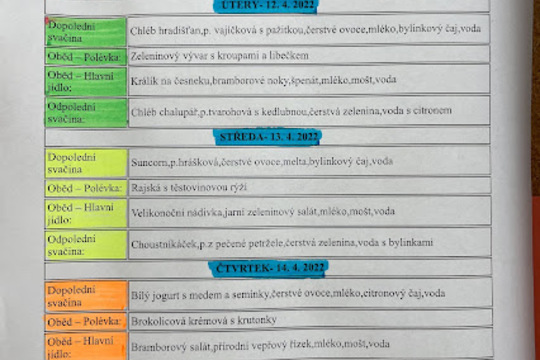 ÚTERÝ- 12. 4. 2022
Dopolední svačina Chléb hradišťan,p. vajíčková s pažitkou,čerstvé ovoce,mléko,bylinkový čaj,voda
Oběd – Polévka: Zeleninový vývar s kroupami a libečkem
Oběd – Hlavní jídlo: Králík na česneku,bramborové noky,špenát,mléko,mošt,voda
Odpolední svačina: Chléb chalupář,p.tvarohová s kedlubnou,čerstvá zelenina,voda s citronem
STŘEDA- 13. 4. 2022
Dopolední svačina Suncorn,p.hrášková,čerstvé ovoce,melta,bylinkový čaj,voda
Oběd – Polévka: Rajská s těstovinovou rýží
Oběd – Hlavní jídlo: Velikonoční nádivka,jarní zeleninový salát,mléko,mošt,voda
Odpolední svačina: Choustníkáček,p.z pečené petržele,čerstvá zelenina,voda s bylinkami
ČTVRTEK- 14. 4. 2022
Dopolední svačina Bílý jogurt s medem a semínky,čerstvé ovoce,mléko,citronový čaj,voda
Oběd – Polévka: Brokolicová krémová s krutonky
Oběd – Hlavní jídlo: Bramborový salát,přírodní vepřový řízek,mléko,mošt,voda